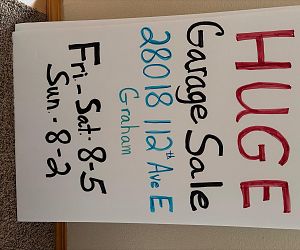 HUGE
Garage Sale
28018 112th Ave E
Graham
Fri - Sat. 8-5
Sun. 8-2